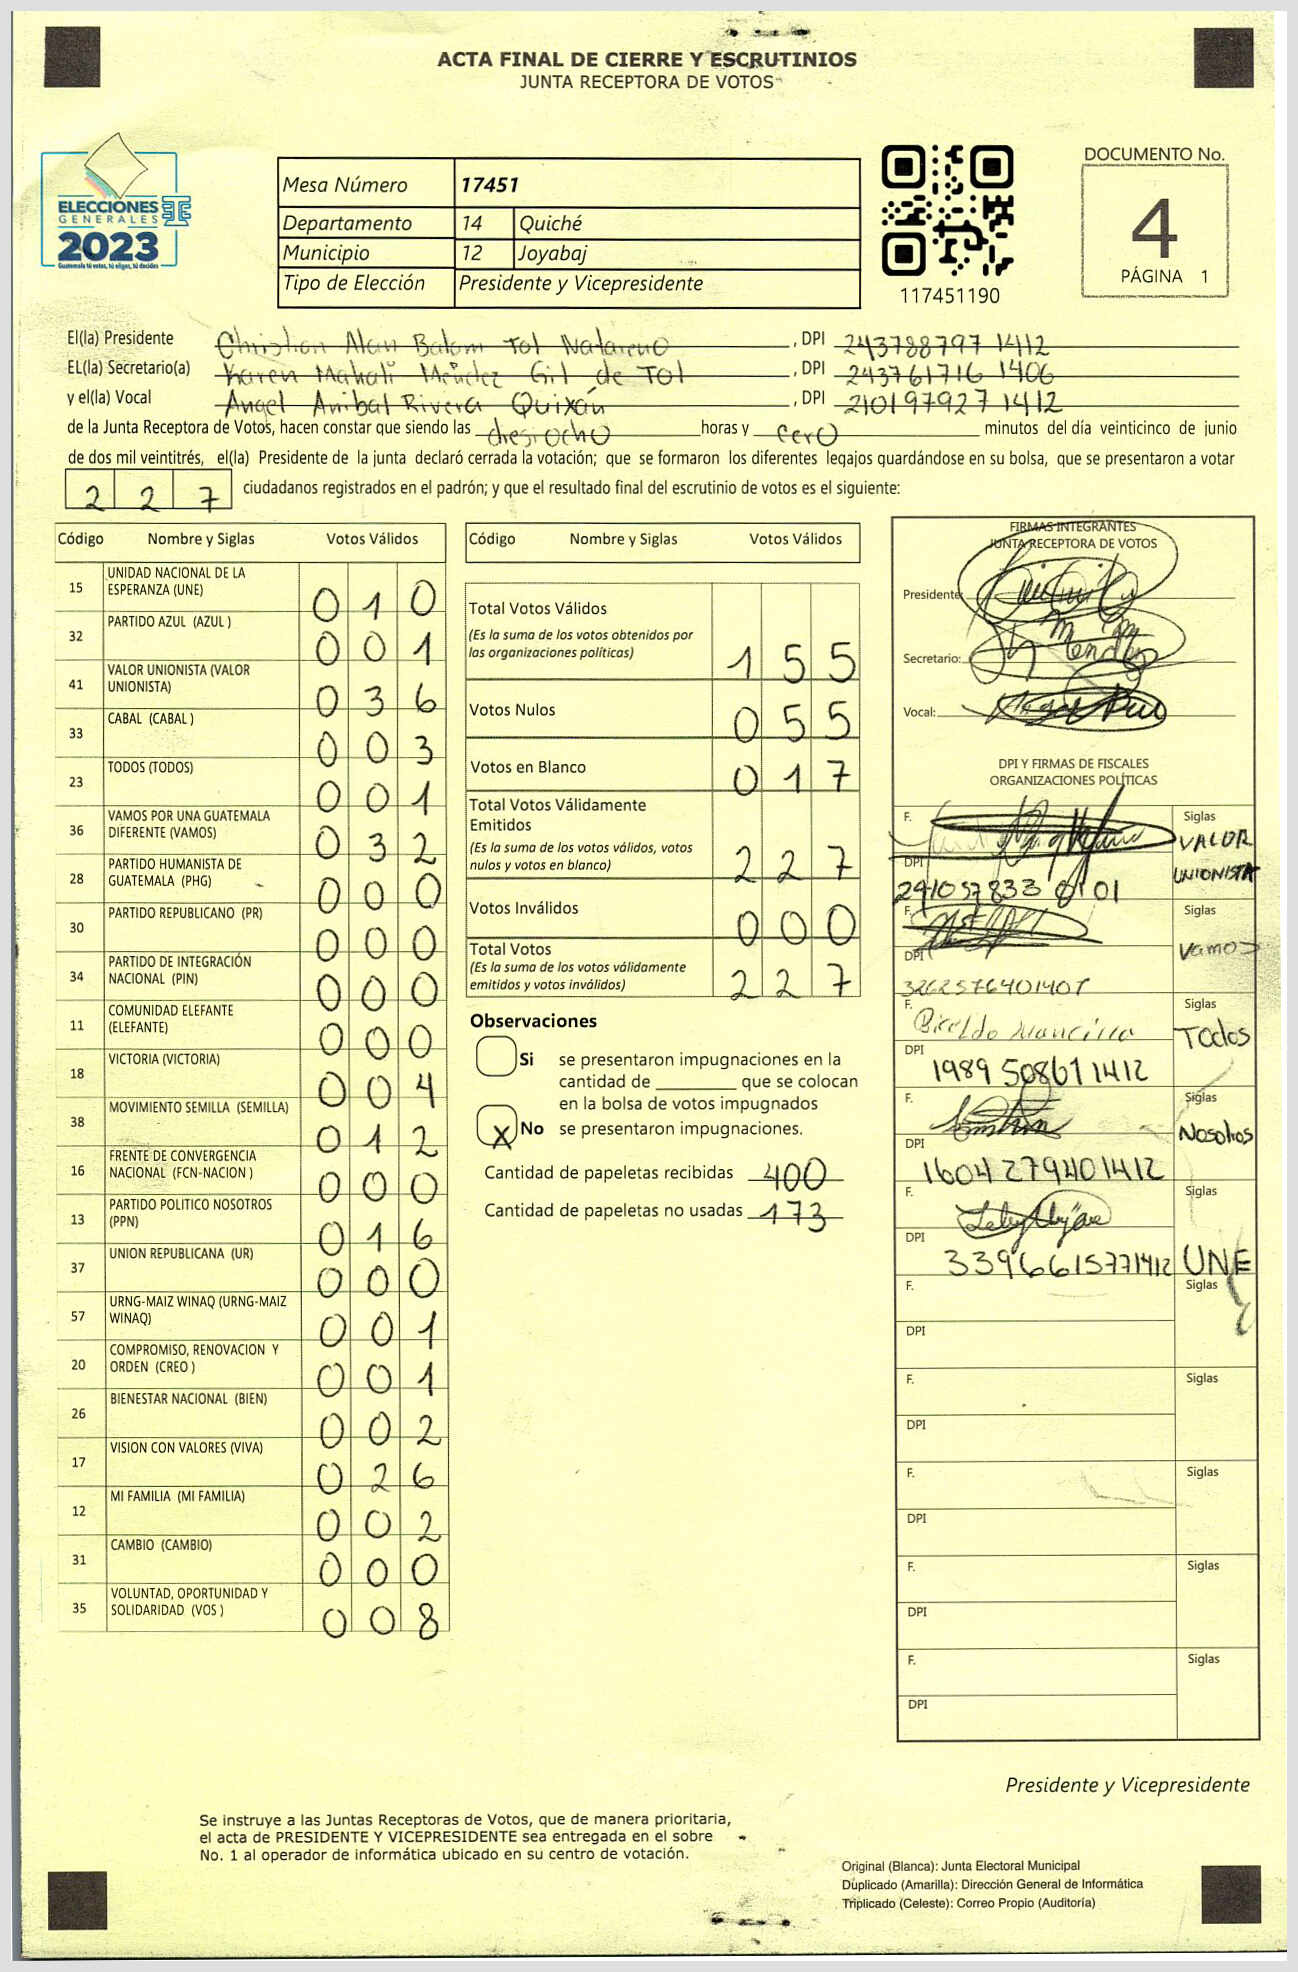 ACTA FINAL DE CIERRE Y ESCRUTINIOS
JUNTA RECEPTORA DE VOTOS
ELECCIONES
GENERALES
2023
Guatemala tú votas, tú eliges, tú decides
Mesa Número 17451
Departamento 14 Quiché
Municipio 12 Joyabaj
Tipo de Elección Presidente y Vicepresidente
117451190
DOCUMENTO No.
4
PÁGINA 1
El(la) Presidente Christian Alan Balam Tol Natareno , DPI 243788797 1412
EL(la) Secretario(a) Karen Mahali Méndez Gil de Tol , DPI 243761716 1406
y el(la) Vocal Angel Anibal Rivera Quixán , DPI 210197927 1412
de la Junta Receptora de Votos, hacen constar que siendo las diesiocho horas y cero minutos del día veinticinco de junio
de dos mil veintitrés, el(la) Presidente de la junta declaró cerrada la votación; que se formaron los diferentes legajos guardándose en su bolsa, que se presentaron a votar
2 2 7 ciudadanos registrados en el padrón; y que el resultado final del escrutinio de votos es el siguiente:
Código Nombre y Siglas Votos Válidos
15 UNIDAD NACIONAL DE LA
ESPERANZA (UNE) 0 1 0
32 PARTIDO AZUL (AZUL ) 0 0 1
41 VALOR UNIONISTA (VALOR
UNIONISTA) 0 3 6
33 CABAL (CABAL ) 0 0 3
23 TODOS (TODOS) 0 0 1
36 VAMOS POR UNA GUATEMALA
DIFERENTE (VAMOS) 0 3 2
28 PARTIDO HUMANISTA DE
GUATEMALA (PHG) 0 0 0
30 PARTIDO REPUBLICANO (PR) 0 0 0
34 PARTIDO DE INTEGRACIÓN
NACIONAL (PIN) 0 0 0
11 COMUNIDAD ELEFANTE
(ELEFANTE) 0 0 0
18 VICTORIA (VICTORIA) 0 0 4
38 MOVIMIENTO SEMILLA (SEMILLA) 0 1 2
16 FRENTE DE CONVERGENCIA
NACIONAL (FCN-NACION ) 0 0 0
13 PARTIDO POLITICO NOSOTROS
(PPN) 0 1 6
37 UNION REPUBLICANA (UR) 0 0 0
57 URNG-MAIZ WINAQ (URNG-MAIZ
WINAQ) 0 0 1
20 COMPROMISO, RENOVACION Y
ORDEN (CREO ) 0 0 1
26 BIENESTAR NACIONAL (BIEN) 0 0 2
17 VISION CON VALORES (VIVA) 0 2 6
12 MI FAMILIA (MI FAMILIA) 0 0 2
31 CAMBIO (CAMBIO) 0 0 0
35 VOLUNTAD, OPORTUNIDAD Y
SOLIDARIDAD (VOS ) 0 0 8
Código Nombre y Siglas Votos Válidos
Total Votos Válidos
(Es la suma de los votos obtenidos por
las organizaciones políticas) 1 5 5
Votos Nulos 0 5 5
Votos en Blanco 0 1 7
Total Votos Válidamente
Emitidos
(Es la suma de los votos válidos, votos
nulos y votos en blanco) 2 2 7
Votos Inválidos 0 0 0
Total Votos
(Es la suma de los votos válidamente
emitidos y votos inválidos) 2 2 7
Observaciones
Si se presentaron impugnaciones en la
cantidad de ________ que se colocan
en la bolsa de votos impugnados
X No se presentaron impugnaciones.
Cantidad de papeletas recibidas 400
Cantidad de papeletas no usadas 173
FIRMAS INTEGRANTES
JUNTA RECEPTORA DE VOTOS
Presidente:
Secretario: Mendez
Vocal:
DPI Y FIRMAS DE FISCALES
ORGANIZACIONES POLÍTICAS
F. Siglas
VALOR
UNIONISTA
DPI
241057833 0101
F. Siglas
Vamos
DPI
F. Siglas
Todos
DPI
1989 50861 1412
F. Siglas
Nosotros
DPI
1604 27940 1412
F. Siglas
UNE
DPI
339661577 1412
F. Siglas
DPI
F. Siglas
DPI
F. Siglas
DPI
F. Siglas
DPI
F. Siglas
DPI
Presidente y Vicepresidente
Se instruye a las Juntas Receptoras de Votos, que de manera prioritaria,
el acta de PRESIDENTE Y VICEPRESIDENTE sea entregada en el sobre
No. 1 al operador de informática ubicado en su centro de votación.
Original (Blanca): Junta Electoral Municipal
Duplicado (Amarilla): Dirección General de Informática
Triplicado (Celeste): Correo Propio (Auditoría)